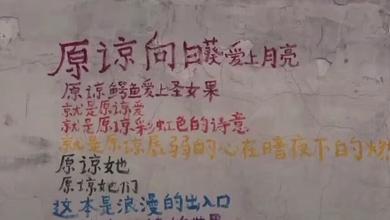 原谅向日葵爱上月亮
原谅鳄鱼爱上圣女果
就是原谅爱
就是原谅彩虹色的诗意
就是原谅孱弱的心在暗夜下的
原谅她
原谅她们
这本是浪漫的出入口